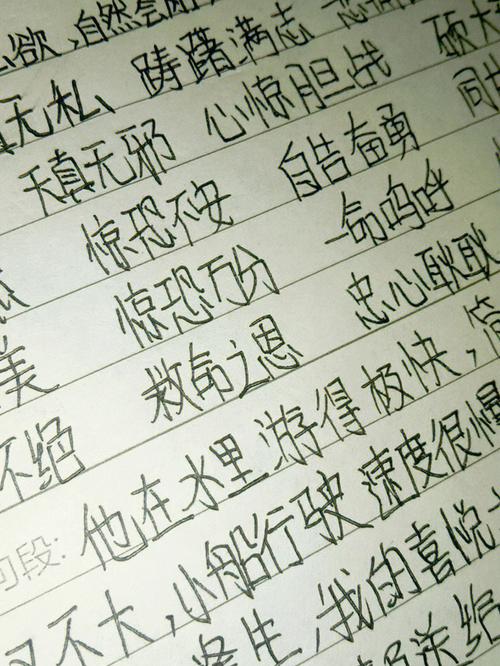 欲，自然会
无私、踌躇满志
天真无邪 心惊胆战 硕大
惊恐不安 自告奋勇 同
美 惊恐万分 一命呜呼
不绝 救命之恩 忠心耿耿
句段: 他在水里游得极快，简
不大，小船行驶速度很
生，我的喜悦